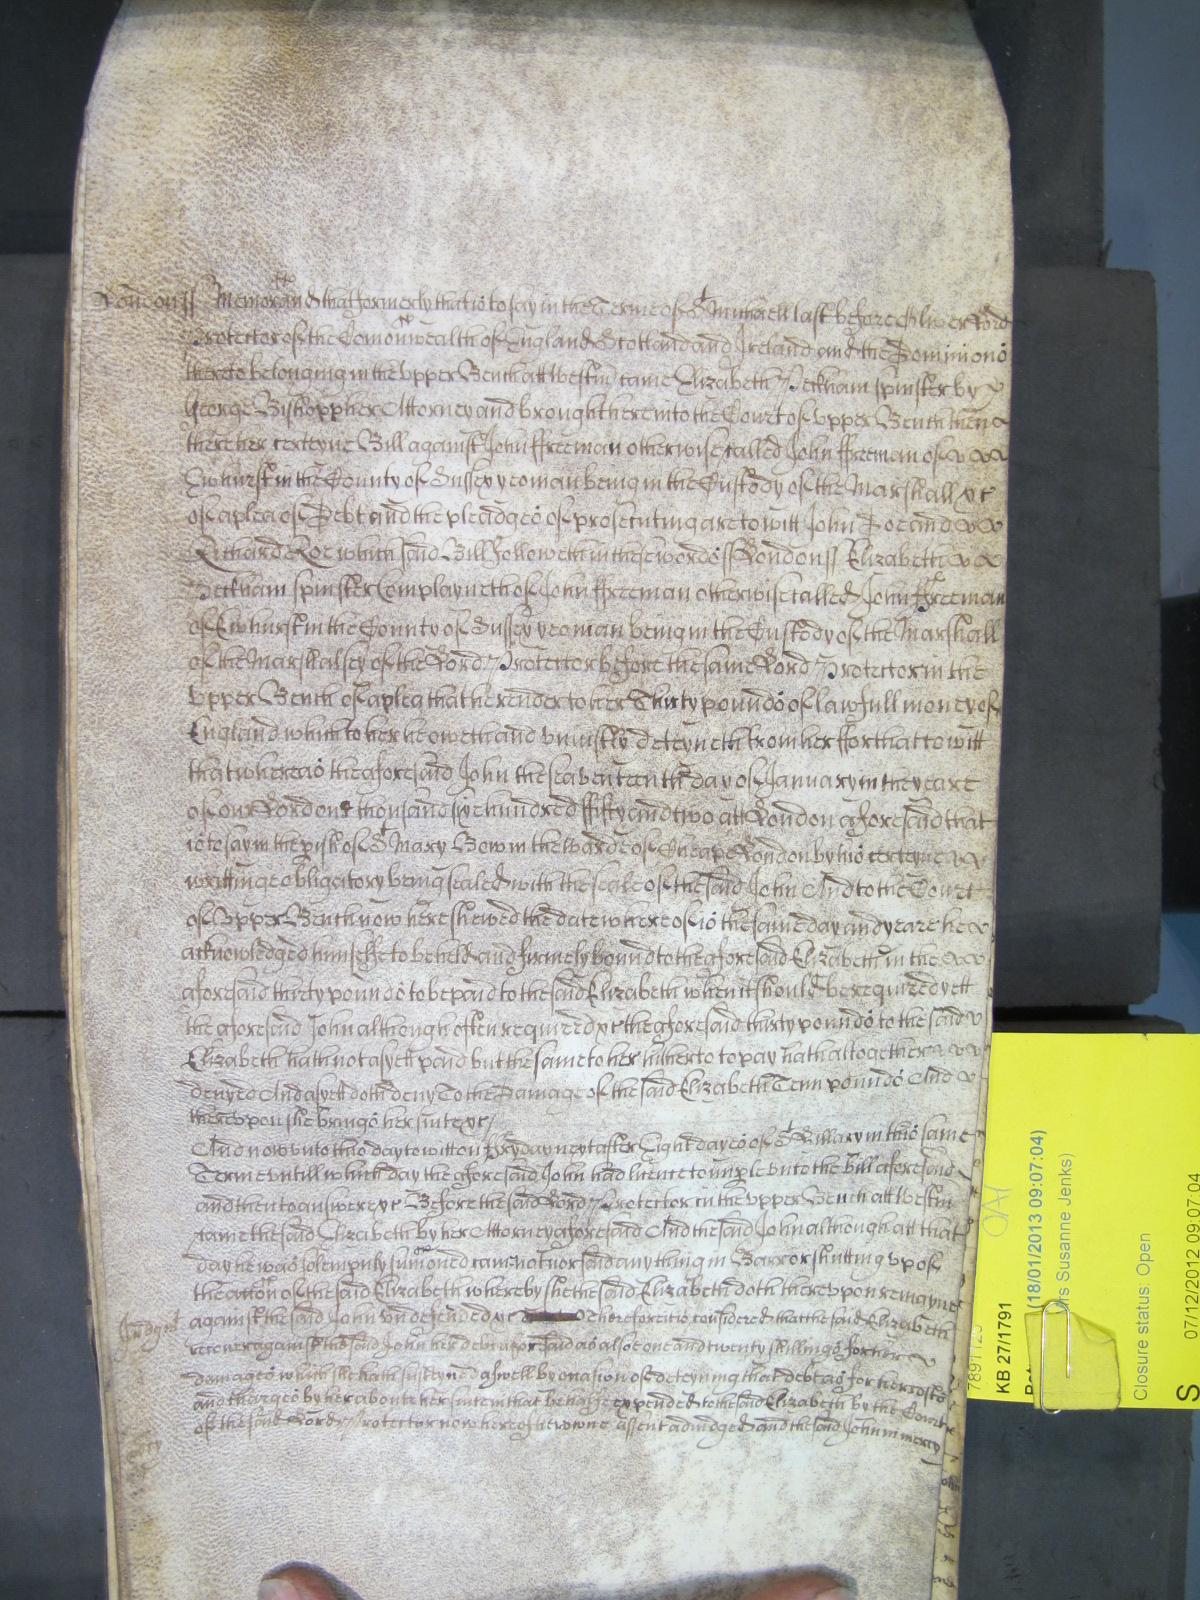 London ss Memorand that formerly that is to say in the Terme of St Michaell last before Oliver Lord
Protector of the Comonwealth of England Scotland and Ireland and the Dominions
thereto belonging in the Upper Bench att Westm came Elizabeth Peckham spinster by
George Bishopp her Attorney and brought here into the Court of Upper Bench then
there her certeyne Bill against John ffreeman otherwise called John ffreeman of
Ewhurst in the County of Sussex yeoman being in the Custody of the Marshall &c
of a plea of Debt and the pleadges of prosecuting are to witt John Doe and
Richard Roe which said Bill followeth in these words ss London ss Elizabeth
Peckham spinster Complayneth of John ffreeman otherwise called John ffreeman
of Ewhurst in the County of Sussex yeoman being in the Custody of the Marshall
of the Marshalsey of the Lord Protector before the same Lord Protector in the
Upper Bench of a plea that he render to her Thirty pounds of lawfull money of
England which to her he oweth and uniustly deteyneth from her ffor that to witt
that whereas the aforesaid John the seaventeenth day of January in the yeare
of our Lord one thousand six hundred ffifty and two att London aforesaid that
is to say in the pish of St Mary Bow in the Warde of Cheape London by his certeyne
writtinge obligatory being sealed with the seale of the said John And to the Court
of Upper Bench now here shewed the date whereof is the same day and yeare hee
acknowledged himselfe to be held and firmely bound to the aforesaid Elizabeth in the
aforesaid thirty pounds to be paid to the said Elizabeth when it should be required yett
the aforesaid John although often required &c the aforesaid thirty pounds to the said
Elizabeth hath not as yett paid but the same to her hitherto to pay hath altogether
denyed And as yett doth deny To the Damage of the said Elizabeth Tenn pounds And
thereupon she brings her suite &c
And now unto this day to witt on ffryday next after Eight dayes of St Hillary in this same
Terme untill which day the aforesaid John had licence to imple unto the bill aforesaid
and then to answere &c Before the said Lord Protector in the Upper Bench att Westm
came the said Elizabeth by her Attorney aforesaid And the said John although att that
day he was solempnly sumoned came not nor said any thing in Barr or shutting up of
the accon of the said Elizabeth whereby she the said Elizabeth doth thereupon remayne
Judgmt against the said John undefended &c Therefore itis considered that the said Elizabeth
recover against the said John her debt aforesaid as alsoe one and twenty shillings for her
damages which she hath susteyned aswell by occasion of deteyning that debt as for her costs
and charges by her about her suite in that behalfe expended to the said Elizabeth by the Court
of the said Lord Protector now here of her owne assent adiudged and the said John in mercy
KB 27/1791
(18/01/2013 09:07:04)
Susanne Jenks)
Closure status: Open
07/12/2012 09:07:04